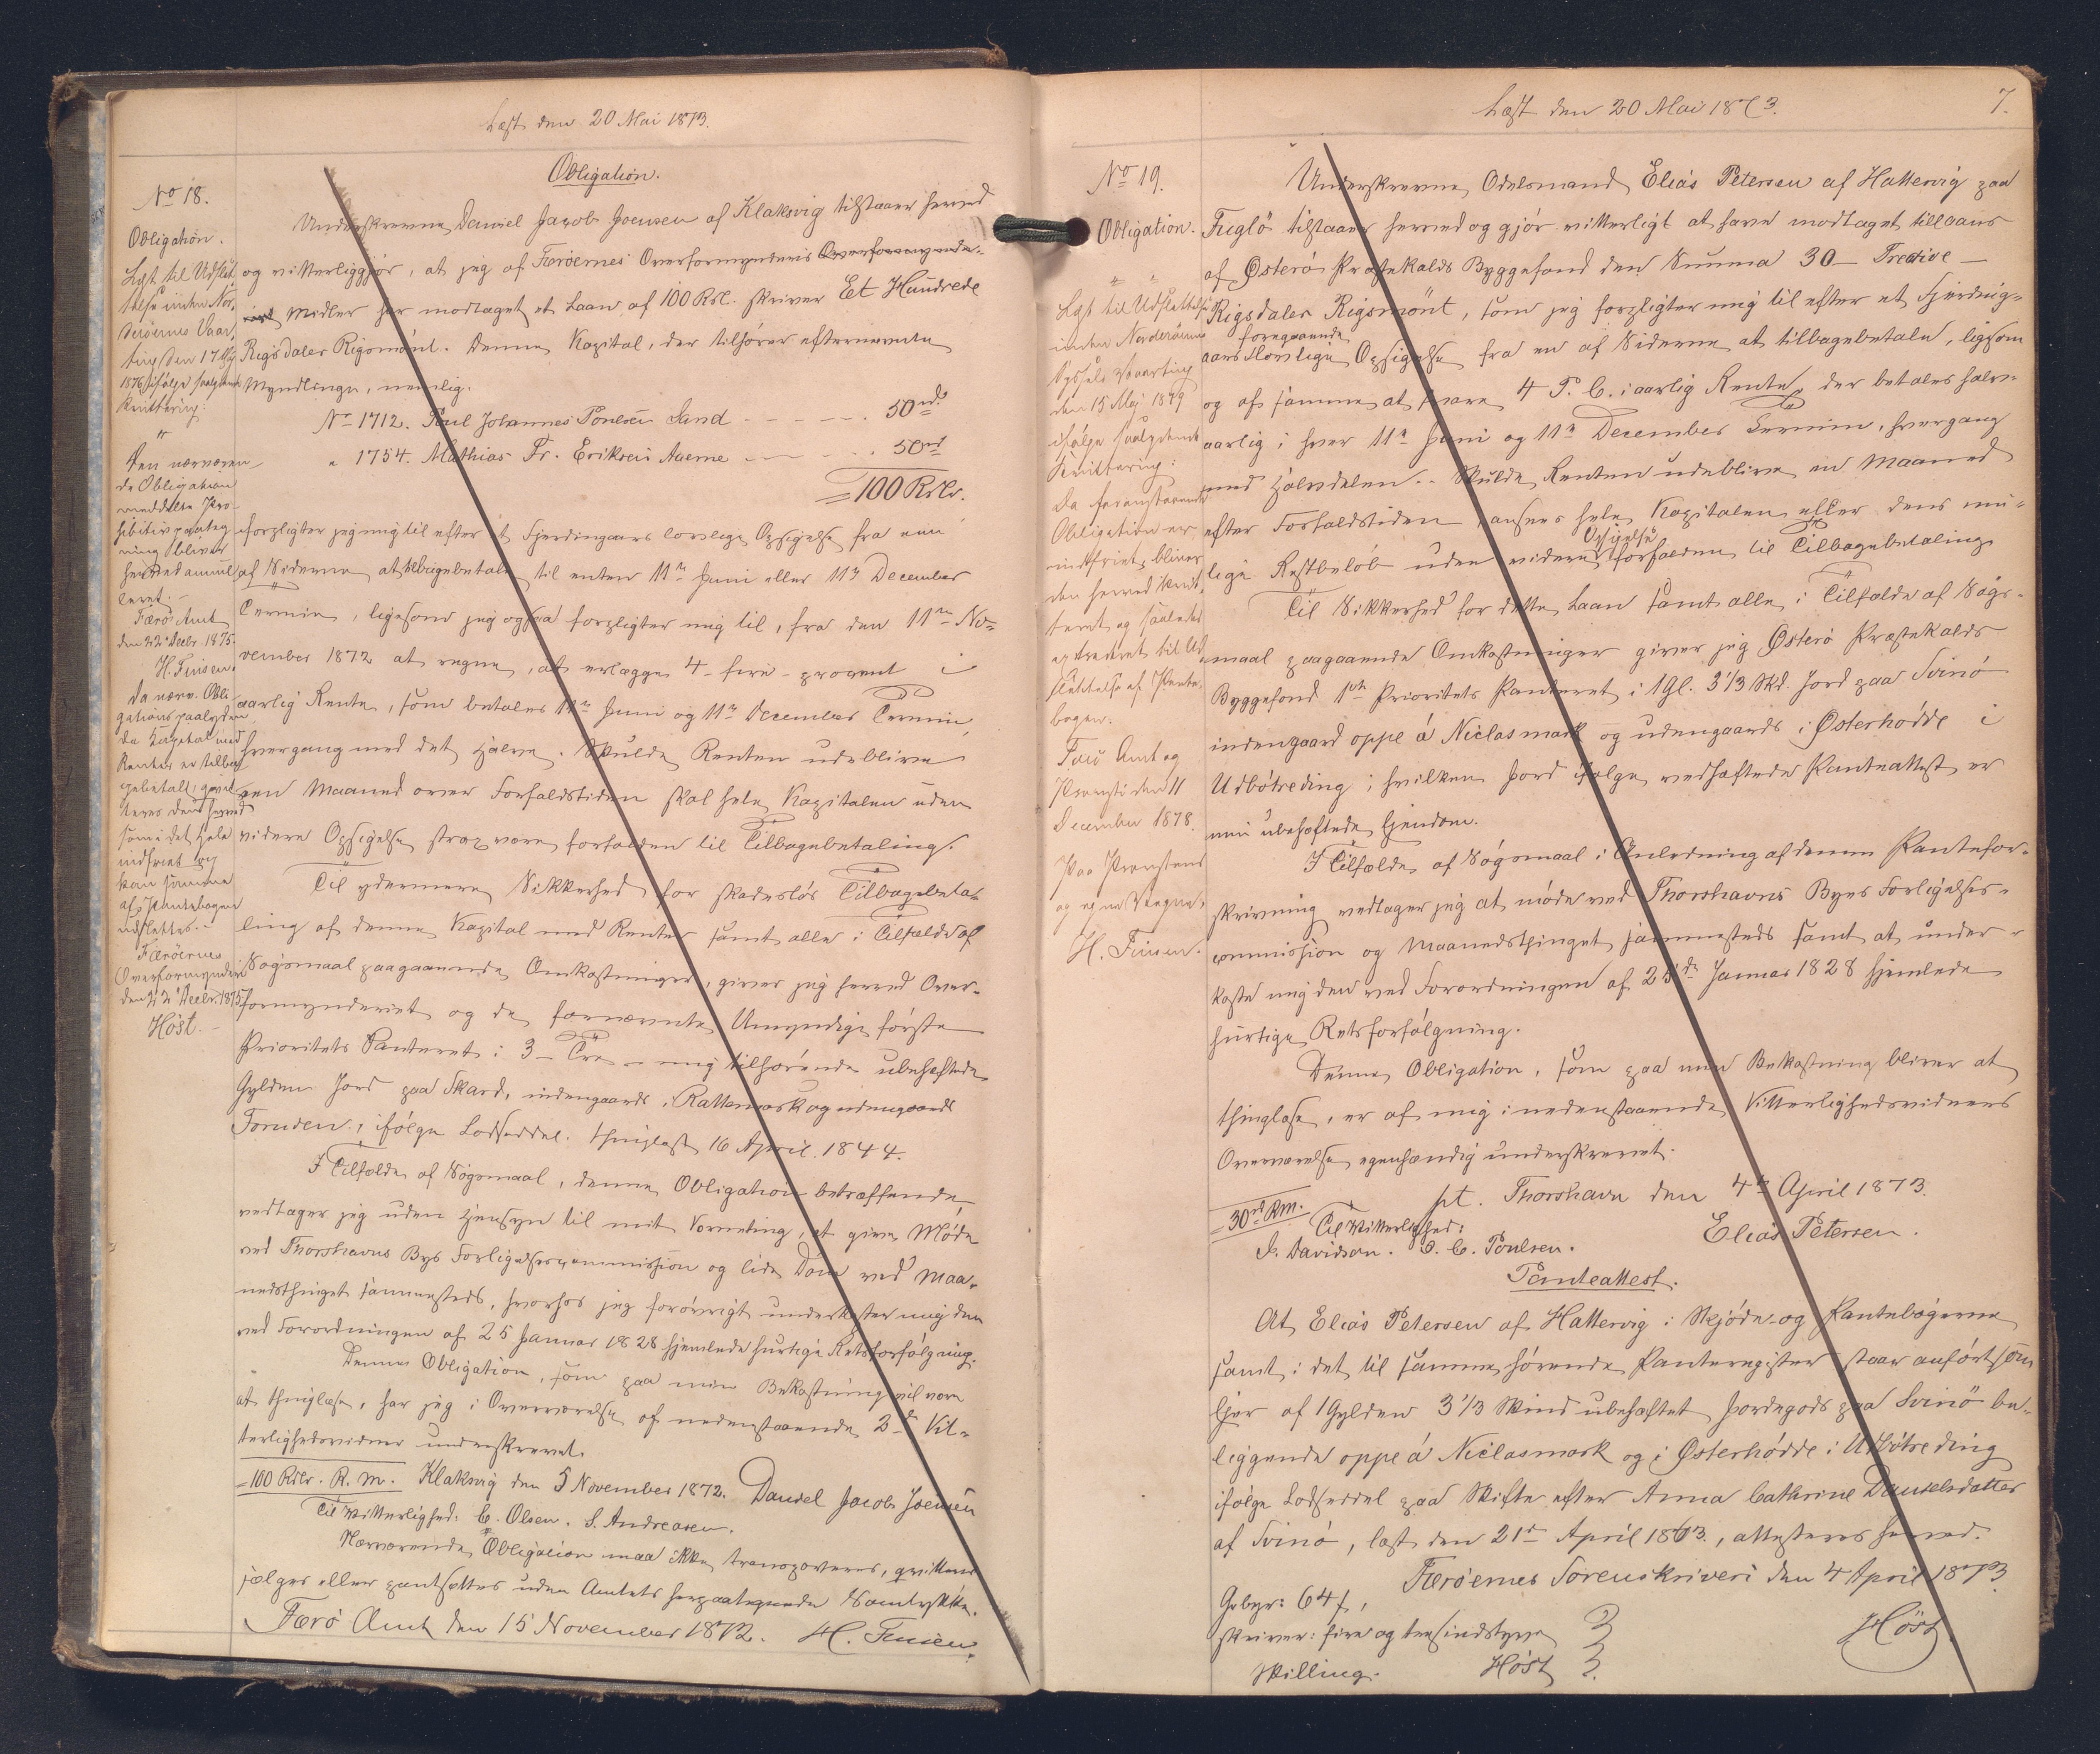 Læst den 20 Mai 1873.
No 18.
Obligation.
Lyst til Udslet
telse inden Nor-
derøernes Vaar-
ting den 17 Maj
1876 ifølge saalydende
Kvittering:
"
Den nærværen-
de Obligation
meddelte Pro-
hibitivpaateg-
ning bliver
herved annul-
leret.
Færø Amt
den 22 Decbr. 1875.
H. Finsen.
Da nærv. Obli-
gations paalyden-
de Kapital med
Renter er tilba-
gebetalt, qvit-
teres den herved
som i det Hele
indfriet og
kan samme
af Pantebogen
udslettes.
Færøernes
Overformynderi
den 22 Decbr. 1875
Høst.
Obligation.
Underskrevne Daniel Jacob Joensen af Klaksvig tilstaaer herved
og vitterliggjør, at jeg af Færøernes Overformynderis Overformynde-
ris Midler har modtaget et Laan af 100 Rdl. skriver Et Hundrede
Rigsdaler Rigsmønt. Denne Kapital, der tilhører efternævnte
Myndlinge, nemlig:
No 1712. Poul Johannes Poulsen Sand - - - - - 50 rd.
" 1754. Mathias Fr. Eriksen Aaerne - - - - 50 rd
= 100 Rdlr.
forpligter jeg mig til efter et Fjerdingaars lovlige Opsigelse fra een
af Siderne at tilbagebetale til enten 11te Juni eller 11te December
Termin, ligesom jeg ogsaa forpligter mig til, fra den 11te No-
vember 1872 at regne, at erlægge 4 - fire - procent i
aarlig Rente, som betales 11te Juni og 11te December Termin,
hvergang med det Halve. Skulde Renten udeblive
een Maaned over Forfaldstiden skal hele Kapitalen uden
videre Opsigelse strax være forfalden til Tilbagebetaling.
Til ydermere Sikkerhed for skadesløs Tilbagebeta-
ling af denne Kapital med Renter samt alle i Tilfælde af
Søgsmaal paagaaende Omkostninger, giver jeg herved Over-
formynderiet og de fornævnte Umyndige første
Prioritets Panteret i 3 - Tre - mig tilhørende ubehæftede
Gylden Jord paa Skard, indengaards i Rattemark og udengaards
Foruden, ifølge Lodseddel. thinglæst 16 April. 1844.
I Tilfælde af Søgsmaal, denne Obligation betræffende
vedtager jeg uden Hensyn til mit Værneting, at give Møde
ved Thorshavns Byes Forligelsescommission og lide Dom ved Maa-
nedsthinget sammesteds, hvorhos jeg forøvrigt underkaster mig den
ved Forordningen af 25 Januar 1828 hjemlede hurtige Retsforfølgning.
Denne Obligation, som paa min Bekostning vil være
at thinglæse, har jeg i Overværelse af nedenstaaende 2de Vit-
terlighedsvidner underskrevet.
= 100 Rdlr. R. M. Klaksvig den 5 November 1872. Daniel Jacob Joensen
Til Vitterlighed: C. Olsen. S. Andreasen.
Nærværende Obligation maa ikke transporteres, qvitteres
sælges eller pantsættes uden Amtets herpaategnede Samtykke.
Færø Amt den 15 November 1872. H. Finsen.
Læst den 20 Mai 1873.
7.
No 19.
Obligation.
" "
Lyst til Udslettelse
inden Norderøernes
Syssels Vaarting
den 15 Maj 1879
ifølge saalydende
Kvittering:
Da foranstaaende
Obligation er
indfriet, bliver
den herved kvit-
teret og saaledes
extraderet til Ud-
slettelse af Pante-
bogen.
Færø Amt og
Provsti den 11
December 1878.
Paa Provstens
og egne Vegne.
H. Finsen.
Underskrevne Odelsmand Elias Petersen af Hattervig paa
Fuglø tilstaaer herved og gjør vitterligt at have modtaget tillaans
af Østerø Præstekalds Byggefond den Summa 30 - Tredive -
Rigsdaler Rigsmønt, som jeg forpligter mig til efter et Fjerding-
foregaaende
aars lovlige Opsigelse fra en af Siderne at tilbagebetale, ligesom
og af samme at svare 4 P. C. i aarlig Rente, der betales halv-
aarlig i hver 11te Juni og 11te December Termin, hvergang
med Halvdelen. Skulde Renten udeblive en Maaned
efter Forfaldstiden, ansees hele Kapitalen eller dens mu-
Opsigelse
lige Restbeløb uden videre forfalden til Tilbagebetaling
Til Sikkerhed for dette Laan samt alle i Tilfælde af Søgs-
maal paagaaende Omkostninger giver jeg Østerø Præstekalds
Byggefond 1ste Prioritets Panteret i 1 Gl. 3 1/3 Skd. Jord paa Svinø
indengaard oppe á Niclasmark og udengaards i Østerhødde i
Udbøtreding i hvilken Jord ifølge vedhæftede Panteattest er
min ubehæftede Ejendom.
I Tilfælde af Søgsmaal i Anledning af denne Pantefor-
skrivning vedtager jeg at møde ved Thorshavns Byes Forligelses-
commission og Maanedsthinget sammesteds samt at under-
kaste mig den ved Forordningen af 25de Januar 1828 hjemlede
hurtige Retsforfølgning.
Denne Obligation, som paa min Bekostning bliver at
thinglæse, er af mig i nedenstaaende Vitterlighedsvidners
Overværelse egenhændig underskrevet.
= 30 rd. Rm.
pt. Thorshavn den 4de April 1873.
Til Vitterlighed:
Elias Petersen.
J. Davidsen. O. C. Poulsen.
Panteattest.
At Elias Petersen af Hattervig i Skjøde- og Pantebøgerne
samt i det til samme hørende Panteregister staar anført som
Ejer af 1 Gylden 3 1/3 Skind ubehæftet Jordegods paa Svinø be-
liggende oppe á Niclasmark og i Østerhødde i Udbøtreding
ifølge Lodseddel paa Skifte efter Anna Cathrine Danielsdatter
af Svinø, læst den 21de April 1863., attesteres herved.
Færøernes Sorenskriveri den 4 April 1873
Gebyr: 64 ß,
Høst.
skriver: fire og tresindstyve
Skilling.
Høst